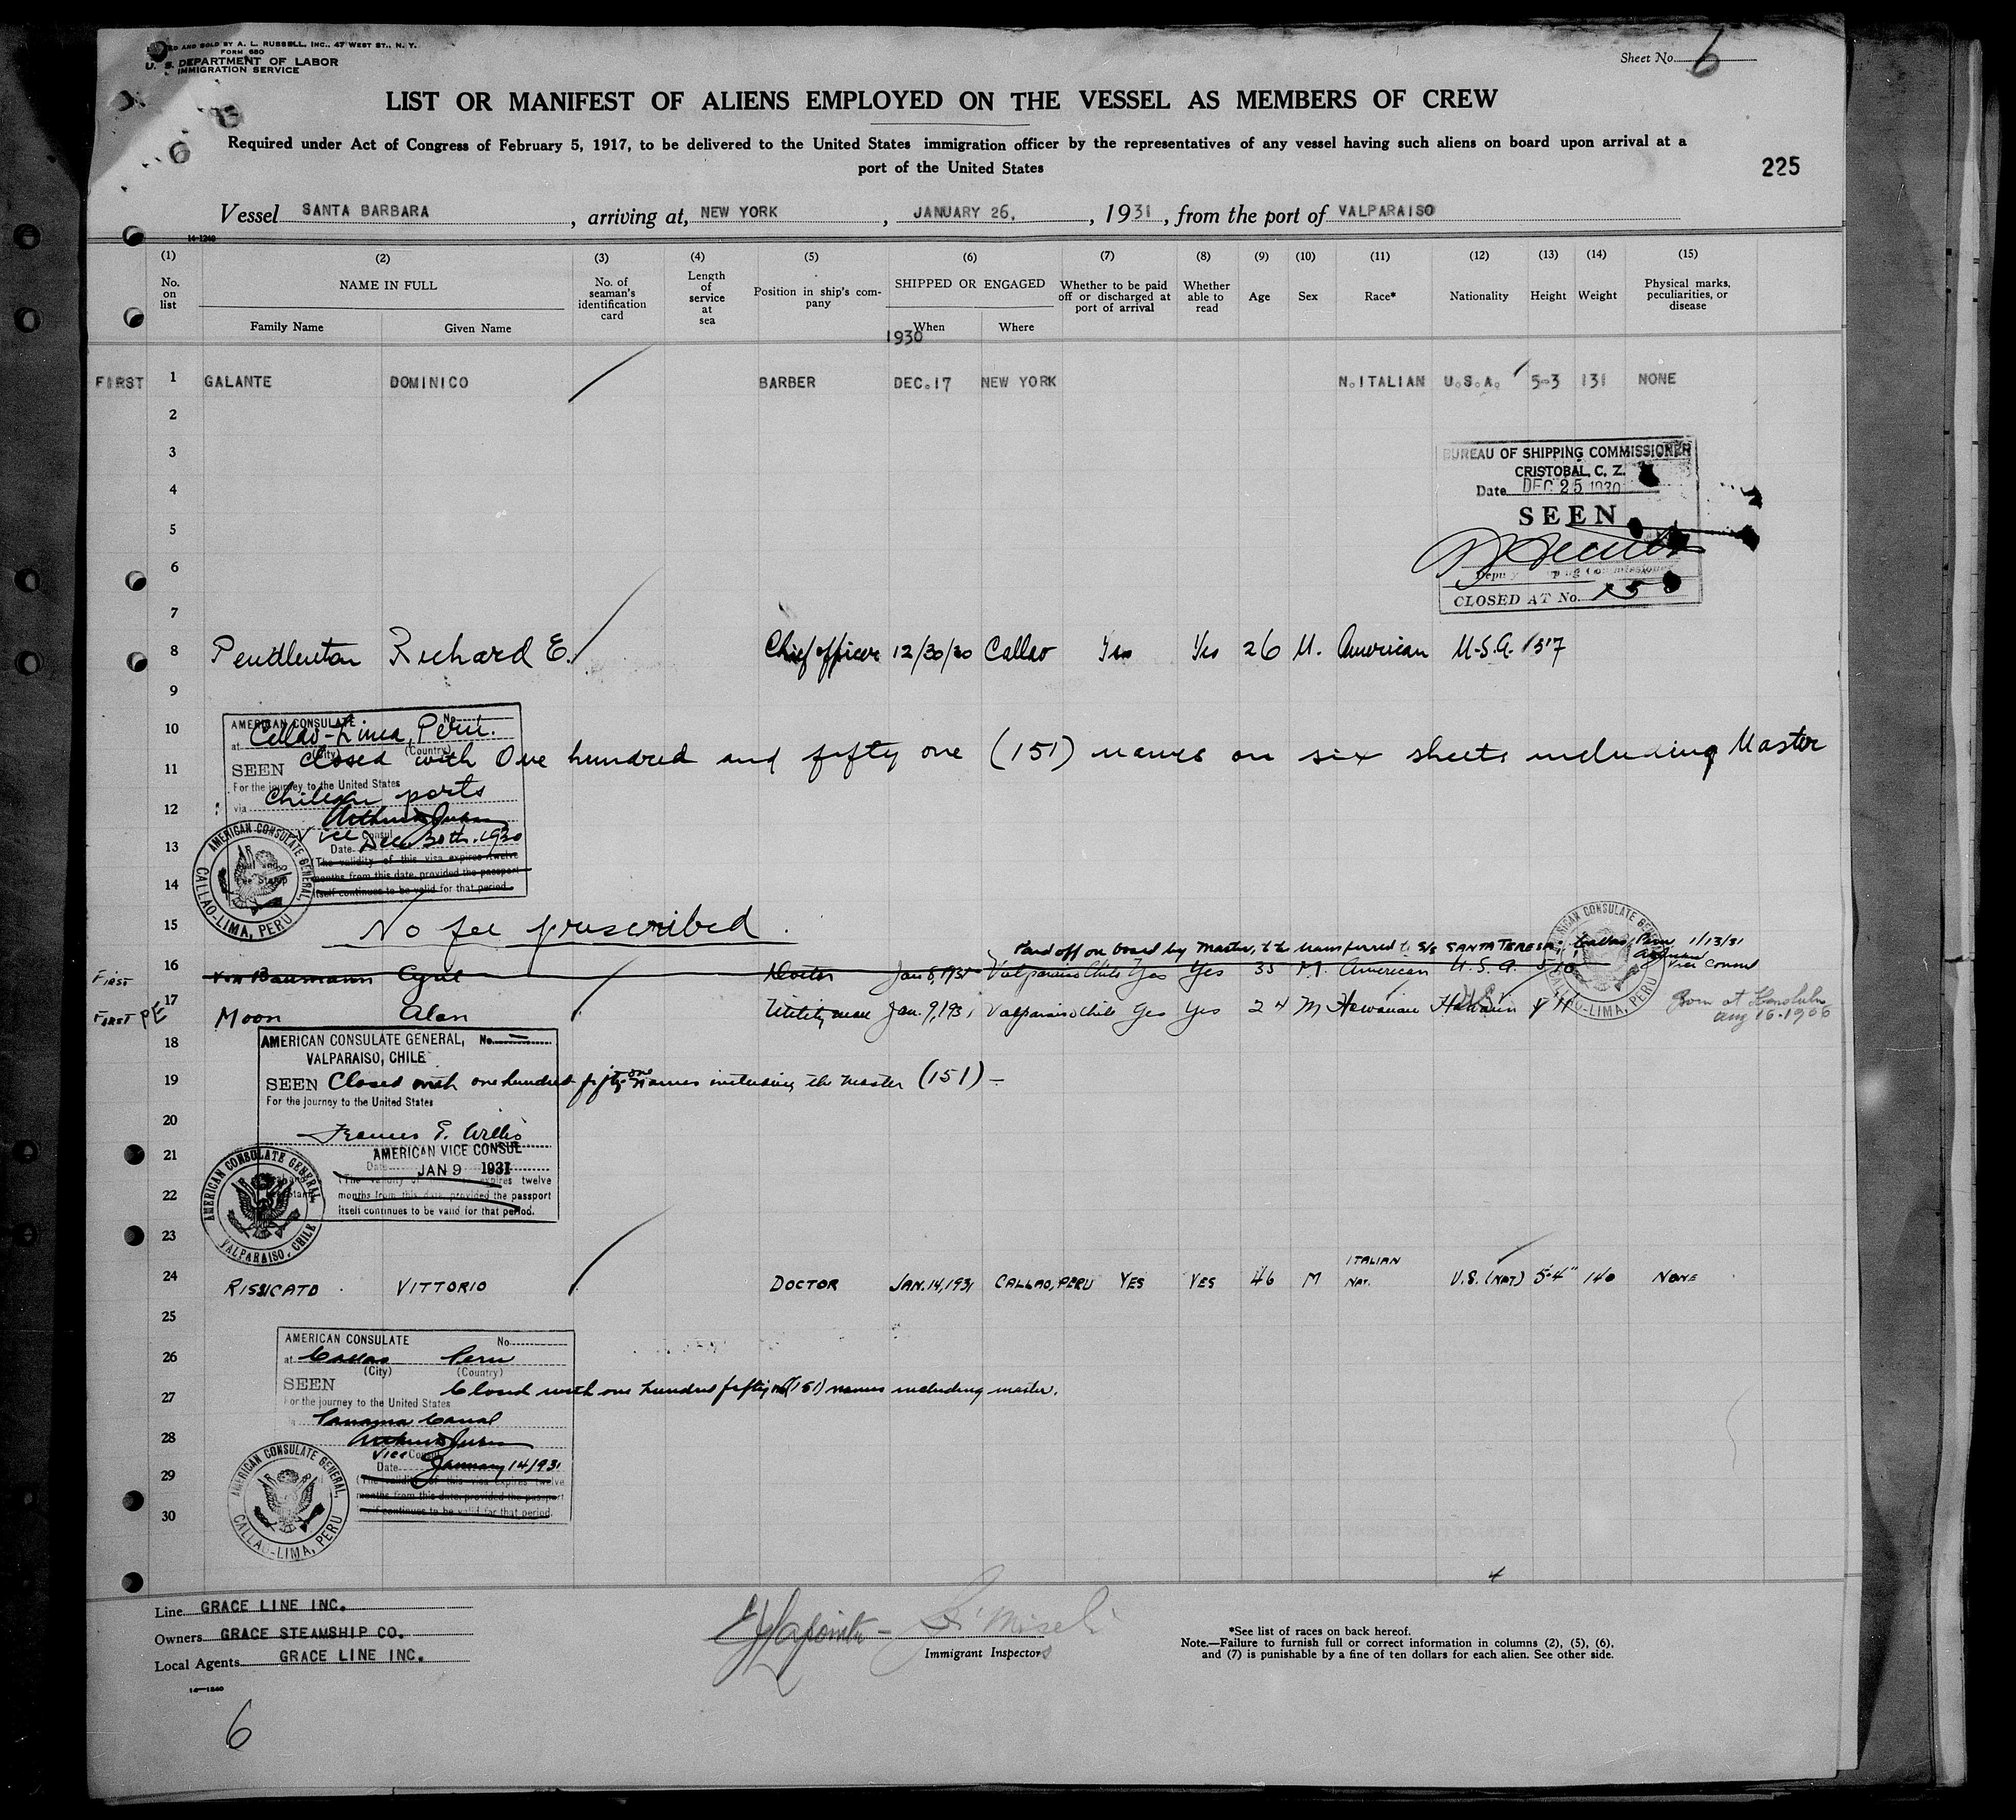 AND SOLD BY A. L. RUSSELL, INC., 47 WEST ST., N. Y.
FORM 680
U. S. DEPARTMENT OF LABOR
IMMIGRATION SERVICE
Sheet No. 6
LIST OR MANIFEST OF ALIENS EMPLOYED ON THE VESSEL AS MEMBERS OF CREW
Required under Act of Congress of February 5, 1917, to be delivered to the United States immigration officer by the representatives of any vessel having such aliens on board upon arrival at a
port of the United States
225
Vessel SANTA BARBARA, arriving at, NEW YORK, JANUARY 26, 1931, from the port of VALPARAISO
14-1240
(1) (2) (3) (4) (5) (6) (7) (8) (9) (10) (11) (12) (13) (14) (15)
No. on list
NAME IN FULL
Family Name Given Name
No. of seaman's identification card
Length of service at sea
Position in ship's company
SHIPPED OR ENGAGED
When Where
1930
Whether to be paid off or discharged at port of arrival
Whether able to read
Age
Sex
Race*
Nationality
Height
Weight
Physical marks, peculiarities, or disease
FIRST 1 GALANTE DOMINICO BARBER DEC.17 NEW YORK N.ITALIAN U.S.A. 5-3 131 NONE
2
3
BUREAU OF SHIPPING COMMISSIONER
CRISTOBAL, C. Z.
4
Date DEC 25 1930
SEEN
5
6
CLOSED AT No. 150
7
8 Pendleton Richard E. Chief officer 12/30/30 Callao Yes Yes 26 M. American U.S.A. 157
9
10
AMERICAN CONSULATE No.
at Callao-Lima, Peru.
(City) (Country)
11 SEEN Closed with One hundred and fifty one (151) names on six sheets including Master
For the journey to the United States
12 via Chilean ports
Vice Consul
13 Date Dec 30th. 1930
(The validity of this visa expires twelve
months from this date, provided the passport
14 itself continues to be valid for that period.
AMERICAN CONSULATE GENERAL, CALLAO-LIMA, PERU
15 No fee prescribed.
Paid off on board by Master, to be transferred to S/S SANTA TERESA; Callao, Peru 1/13/31
Vice Consul
First 16 von Baumann Cyril Doctor Jan 8, 1931 Valparaiso Chile Yes Yes 35 M. American U.S.A. 5 10
AMERICAN CONSULATE GENERAL, CALLAO-LIMA, PERU
First PE 17 Moon Alan Utility man Jan. 9, 1931 Valparaiso Chile Yes Yes 24 M Hawaiian Hawaiian
Born at Honolulu
Aug 16-1906
18
AMERICAN CONSULATE GENERAL, No.
VALPARAISO, CHILE
19 SEEN Closed with one hundred fifty one names including the master (151)
For the journey to the United States
20 Frances E. Willis
21 AMERICAN VICE CONSUL
Date JAN 9 1931
(The validity of this visa expires twelve
22 months from this date, provided the passport
itself continues to be valid for that period.
AMERICAN CONSULATE GENERAL, VALPARAISO, CHILE
23
24 RISSICATO VITTORIO DOCTOR JAN.14,1931 CALLAO, PERU YES YES 46 M ITALIAN NAT. U.S. (NAT) 5-4" 140 NONE
25
AMERICAN CONSULATE No.
26 at Callao Peru
(City) (Country)
SEEN
27 Closed with one hundred fifty one (151) names including master.
For the journey to the United States
Panama Canal
28
Vice Consul
Date January 14/931
29 (The validity of this visa expires twelve
months from this date, provided the passport
30 itself continues to be valid for that period.
AMERICAN CONSULATE GENERAL, CALLAO-LIMA, PERU
4
Line GRACE LINE INC.
Owners GRACE STEAMSHIP CO.
Local Agents GRACE LINE INC.
14-1240
Immigrant Inspectors
*See list of races on back hereof.
Note.—Failure to furnish full or correct information in columns (2), (5), (6),
and (7) is punishable by a fine of ten dollars for each alien. See other side.
6